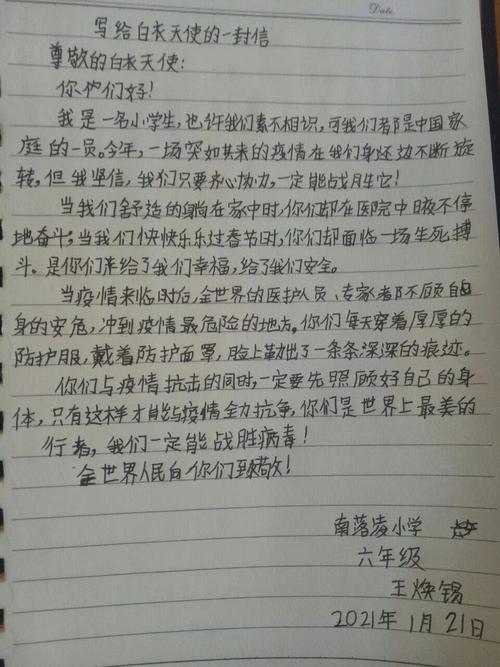 Date
写给白衣天使的一封信
尊敬的白衣天使:
你们好!
我是一名小学生,也许我们素不相识,可我们都是中国家
庭的一员。今年,一场突如其来的疫情在我们身边不断旋
转。但我坚信,我们只要齐心协力,一定能战胜它!
当我们舒适的躺在家中时,你们却在医院中日夜不停
地奋斗;当我们快快乐乐过春节时,你们却面临一场生死搏
斗。是你们来给了我们幸福,给了我们安全。
当疫情来临时后,全世界的医护人员、专家都不顾自
身的安危,冲到疫情最危险的地方。你们每天穿着厚厚的
防护服,戴着防护面罩,脸上勒出了一条条深深的痕迹。
你们与疫情抗击的同时,一定要先照顾好自己的身
体,只有这样才能与疫情全力抗争,你们是世界上最美的
行者,我们一定能战胜病毒!
全世界人民向你们致敬!
南落凌小学
六年级
王焕锡
2021年1月21日